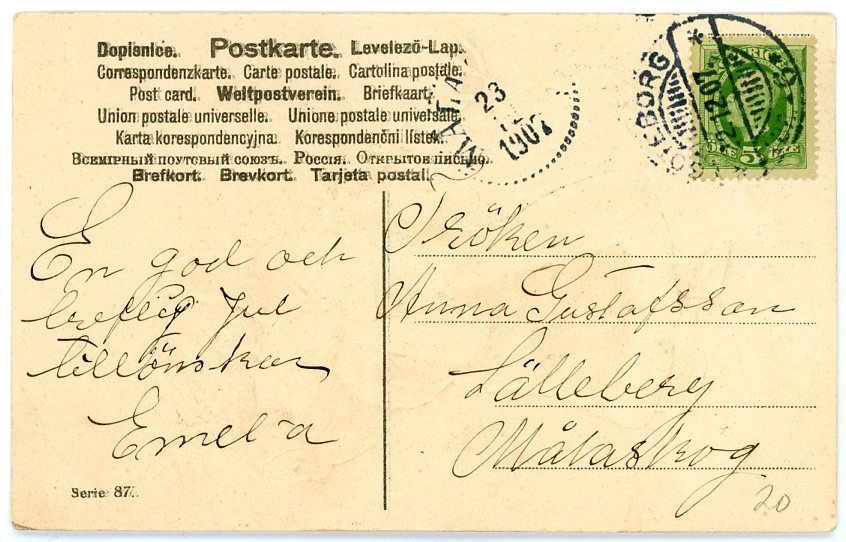 Dopisnice. Postkarte. Levelező-Lap.
Correspondenzkarte. Carte postale. Cartolina postale.
Post card. Weltpostverein. Briefkaart.
Union postale universelle. Unione postale universale.
Karta korespondencyjna. Korespondenční lístek.
Всемірный почтовый союзъ. Россія. Открытое письмо.
Brefkort. Brevkort. Tarjeta postal.
23
1907
GÖTEBORG
12.07
SVERIGE
ÖRE 5 ÖRE
En god och
Jul
tillönskar
Emelia
Fröken
Anna Gustafsson
Lälleberg
Målaskog
Serie 87.
20